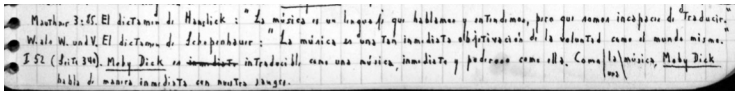 Mauthner 3:85. El dictamen de Hanslick: "La música es un lenguaje que hablamos y entendemos, pero que somos incapaces de traducir."
W. als W. und V. El dictamen de Schopenhauer: "La música es una tan inmediata objetivación de la voluntad como el mundo mismo."
I 52 (Seite 340). Moby Dick es inmediato intraducible como una música, inmediato y poderoso como ella. Como la / una música, Moby Dick
habla de manera inmediata con nuestra sangre.